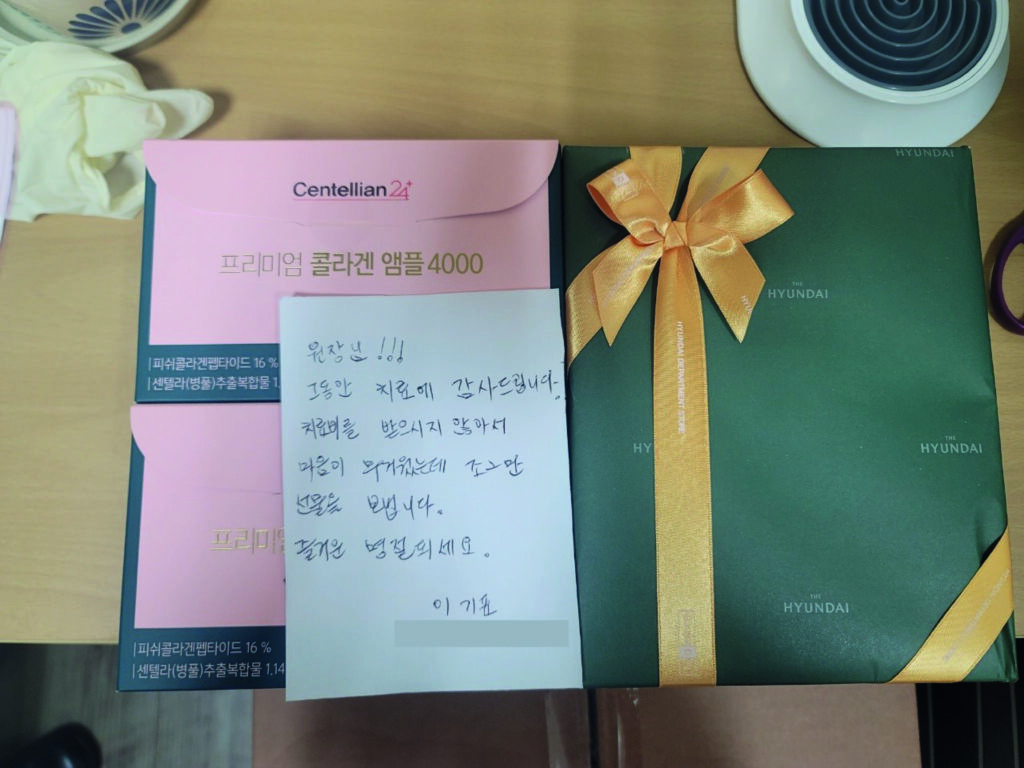 Centellian24+
프리미엄 콜라겐 앰플 4000
| 피쉬콜라겐펩타이드 16 %
| 센텔라(병풀)추출복합물 1.
프리미엄
| 피쉬콜라겐펩타이드 16 %
| 센텔라(병풀)추출복합물 1.14
원장님 !!!
그동안 치료에 감사드립니다.
치료비를 받으시지 않아서
마음이 무거웠는데 조그만
선물을 보냅니다.
즐거운 명절 되세요.
이기표
HYUNDAI
THE
HYUNDAI
HY
THE
HYUNDAI
THE
HYUNDAI
HYUNDAI DEPARTMENT STORE